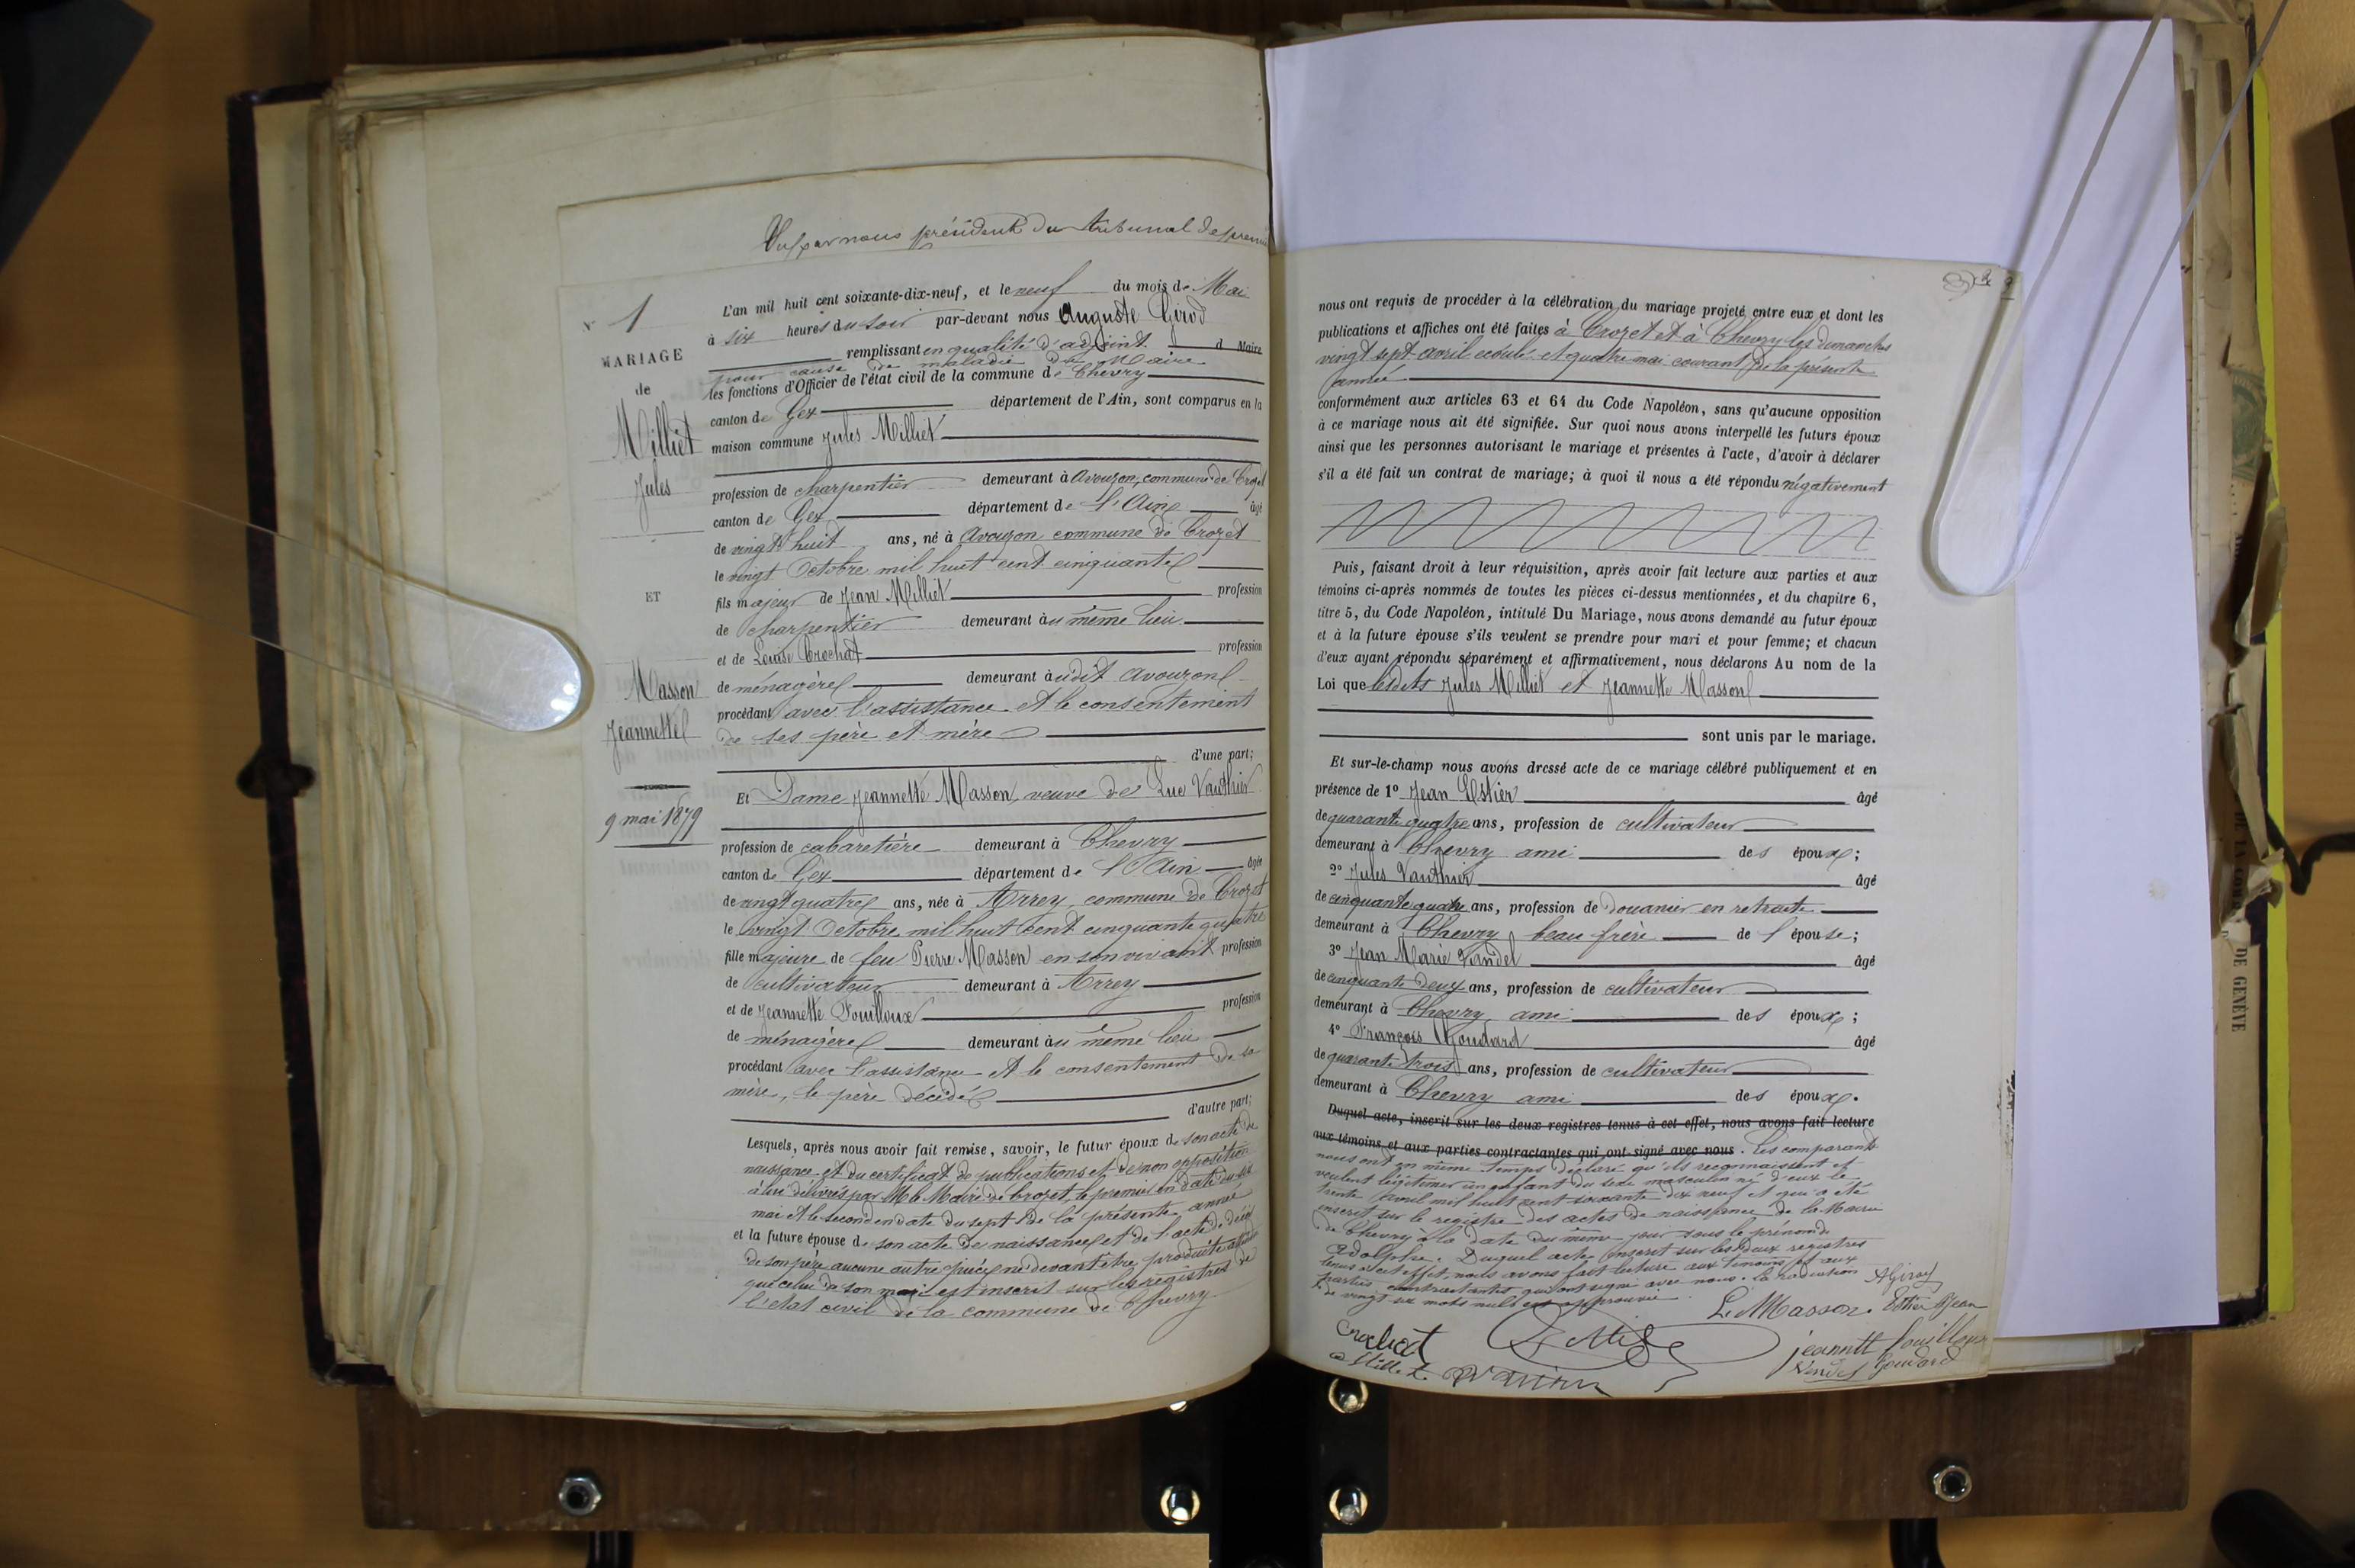 Vu par nous président du tribunal de premi
N° 1
MARIAGE
de
Milliet
Jules
ET
Masson
Jeannette
9 mai 1879
L'an mil huit cent soixante-dix-neuf, et le neuf du mois de Mai
à six heures du soir par-devant nous Auguste Girod
remplissant en qualité d'adjoint d Maire
pour cause de maladie du Maire
les fonctions d'Officier de l'état civil de la commune de Chevry
canton de Gex département de l'Ain, sont comparus en la
maison commune Jules Milliet
profession de charpentier demeurant à Avouzon, commune de Crozet
canton de Gex département de l'Ain âgé
de vingt huit ans, né à Avouzon commune de Crozet
le vingt Octobre mil huit cent cinquante
fils majeur de Jean Milliet profession
de charpentier demeurant au même lieu
et de Louise Crochat profession
de ménagère demeurant audit Avouzon
procédant avec l'assistance et le consentement
de ses père et mère
d'une part;
Et Dame Jeannette Masson, veuve de Luc Vauthier
profession de cabaretière demeurant à Chevry
canton de Gex département de l'Ain âgée
de vingt quatre ans, née à Arrey, commune de Crozet
le vingt Octobre mil huit cent cinquante quatre
fille majeure de feu Pierre Masson en son vivant profession
de cultivateur demeurant à Arrey
et de Jeannette Fouilloux profession
de ménagère demeurant au même lieu
procédant avec l'assistance et le consentement de sa
mère, le père décédé
d'autre part;
Lesquels, après nous avoir fait remise, savoir, le futur époux de son acte de
naissance et du certificat de publications et de non opposition
à lui délivrés par M. le Maire de Crozet, le premier en date du six
mai et le second en date du sept de la présente année
et la future épouse de son acte de naissance et de l'acte de décès
de son père aucune autre pièce ne devant être produite attendu
que celui de son mari est inscrit sur les registres de
l'état civil de la commune de Chevry
nous ont requis de procéder à la célébration du mariage projeté entre eux et dont les
publications et affiches ont été faites à Crozet et à Chevry les dimanches
vingt sept avril écoulé et quatre mai courant de la présente
année
conformément aux articles 63 et 64 du Code Napoléon, sans qu'aucune opposition
à ce mariage nous ait été signifiée. Sur quoi nous avons interpellé les futurs époux
ainsi que les personnes autorisant le mariage et présentes à l'acte, d'avoir à déclarer
s'il a été fait un contrat de mariage; à quoi il nous a été répondu négativement
Puis, faisant droit à leur réquisition, après avoir fait lecture aux parties et aux
témoins ci-après nommés de toutes les pièces ci-dessus mentionnées, et du chapitre 6,
titre 5, du Code Napoléon, intitulé Du Mariage, nous avons demandé au futur époux
et à la future épouse s'ils veulent se prendre pour mari et pour femme; et chacun
d'eux ayant répondu séparément et affirmativement, nous déclarons Au nom de la
Loi que lesdits Jules Milliet et Jeannette Masson
sont unis par le mariage.
Et sur-le-champ nous avons dressé acte de ce mariage célébré publiquement et en
présence de 1° Jean Estier âgé
de quarante quatre ans, profession de cultivateur
demeurant à Chevry ami des époux;
2° Jules Vauthier âgé
de cinquante quatre ans, profession de douanier en retraite
demeurant à Chevry beau frère de l'épouse;
3° Jean Marie Vandel âgé
de cinquante deux ans, profession de cultivateur
demeurant à Chevry, ami des époux;
4° François Goudard âgé
de quarante trois ans, profession de cultivateur
demeurant à Chevry ami des époux.
Duquel acte, inscrit sur les deux registres tenus à cet effet, nous avons fait lecture
aux témoins et aux parties contractantes qui ont signé avec nous. Les comparants
nous ont en même temps déclaré qu'ils reconnaissent et
veulent légitimer un enfant du sexe masculin né d'eux le
trente avril mil huit cent soixante dix neuf et qui a été
inscrit sur le registre des actes de naissance de la Mairie
de Chevry à la date du même jour sous le prénom d
Adolphe. Duquel acte inscrit sur les deux registres
tenus à cet effet, nous avons fait lecture aux témoins et aux
parties contractantes qui ont signé avec nous. La radiation
de vingt six mots nuls est approuvée.
AGirod
L. Masson. Estier Jean
Crochat
jeannett fouilloux
Milliet
Vandel Goudard
DE GENÈVE